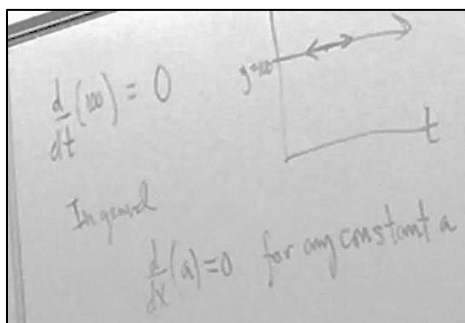 d/dt (100) = 0
y=100
t
In general
d/dx (a) = 0 for any constant a